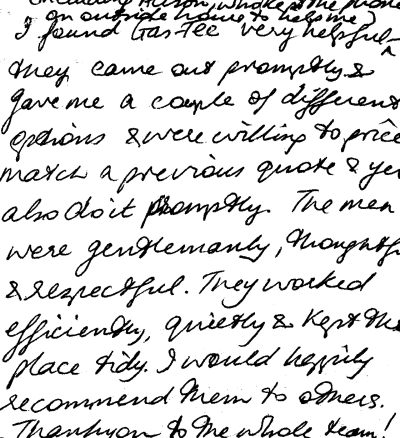 including Alison, who kept the phone
on outside hours to help me
I found Gas-Tec very helpful -
they came out promptly &
gave me a couple of different
options & were willing to price
match a previous quote & yet
also do it promptly. The men
were gentlemanly, thoughtf
& respectful. They worked
efficiently, quietly & kept the
place tidy. I would happily
recommend them to others.
Thankyou to the whole team!